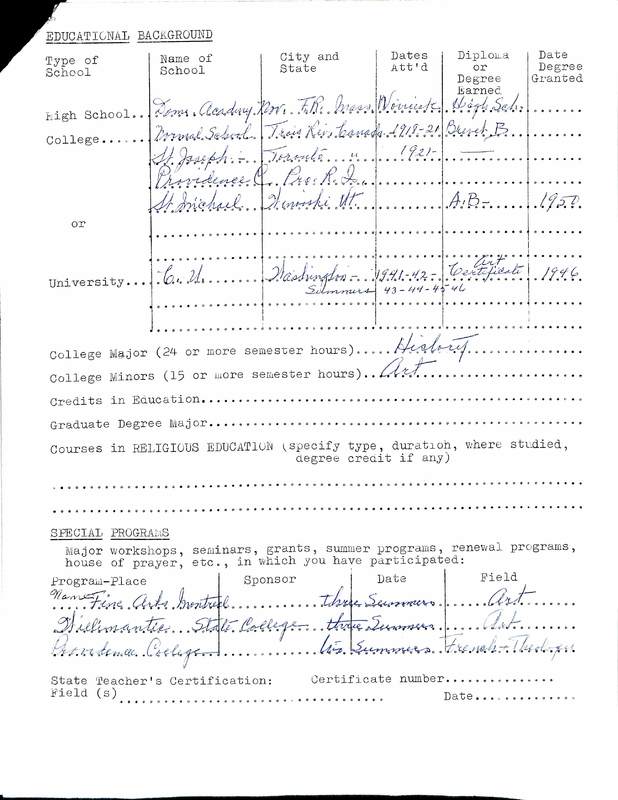 EDUCATIONAL BACKGROUND
Type of School Name of School City and State Dates Att'd Diploma or Degree Earned Date Degree Granted
High School.. Acadmy F.R. Mass. High Sch.
College...... Normal School Canada 1919-21 Brevet B
St. Joseph - Toronto " 1921- —
Providence C. Pro. R.I.
St. Michael Winooski Vt. A.B- 1950
or
University... C. U. Washington - 1941-42- Art Certificate 1946
Summers 43-44-45-46
College Major (24 or more semester hours)..... History
College Minors (15 or more semester hours).. Art
Credits in Education
Graduate Degree Major
Courses in RELIGIOUS EDUCATION (specify type, duration, where studied,
degree credit if any)
SPECIAL PROGRAMS
Major workshops, seminars, grants, summer programs, renewal programs,
house of prayer, etc., in which you have participated:
Program-Place Sponsor Date Field
Name Fine Arts Montreal three Summers Art
Willimantic State College three Summers Art
Providence College Summers French - Theology
State Teacher's Certification: Certificate number
Field (s) Date